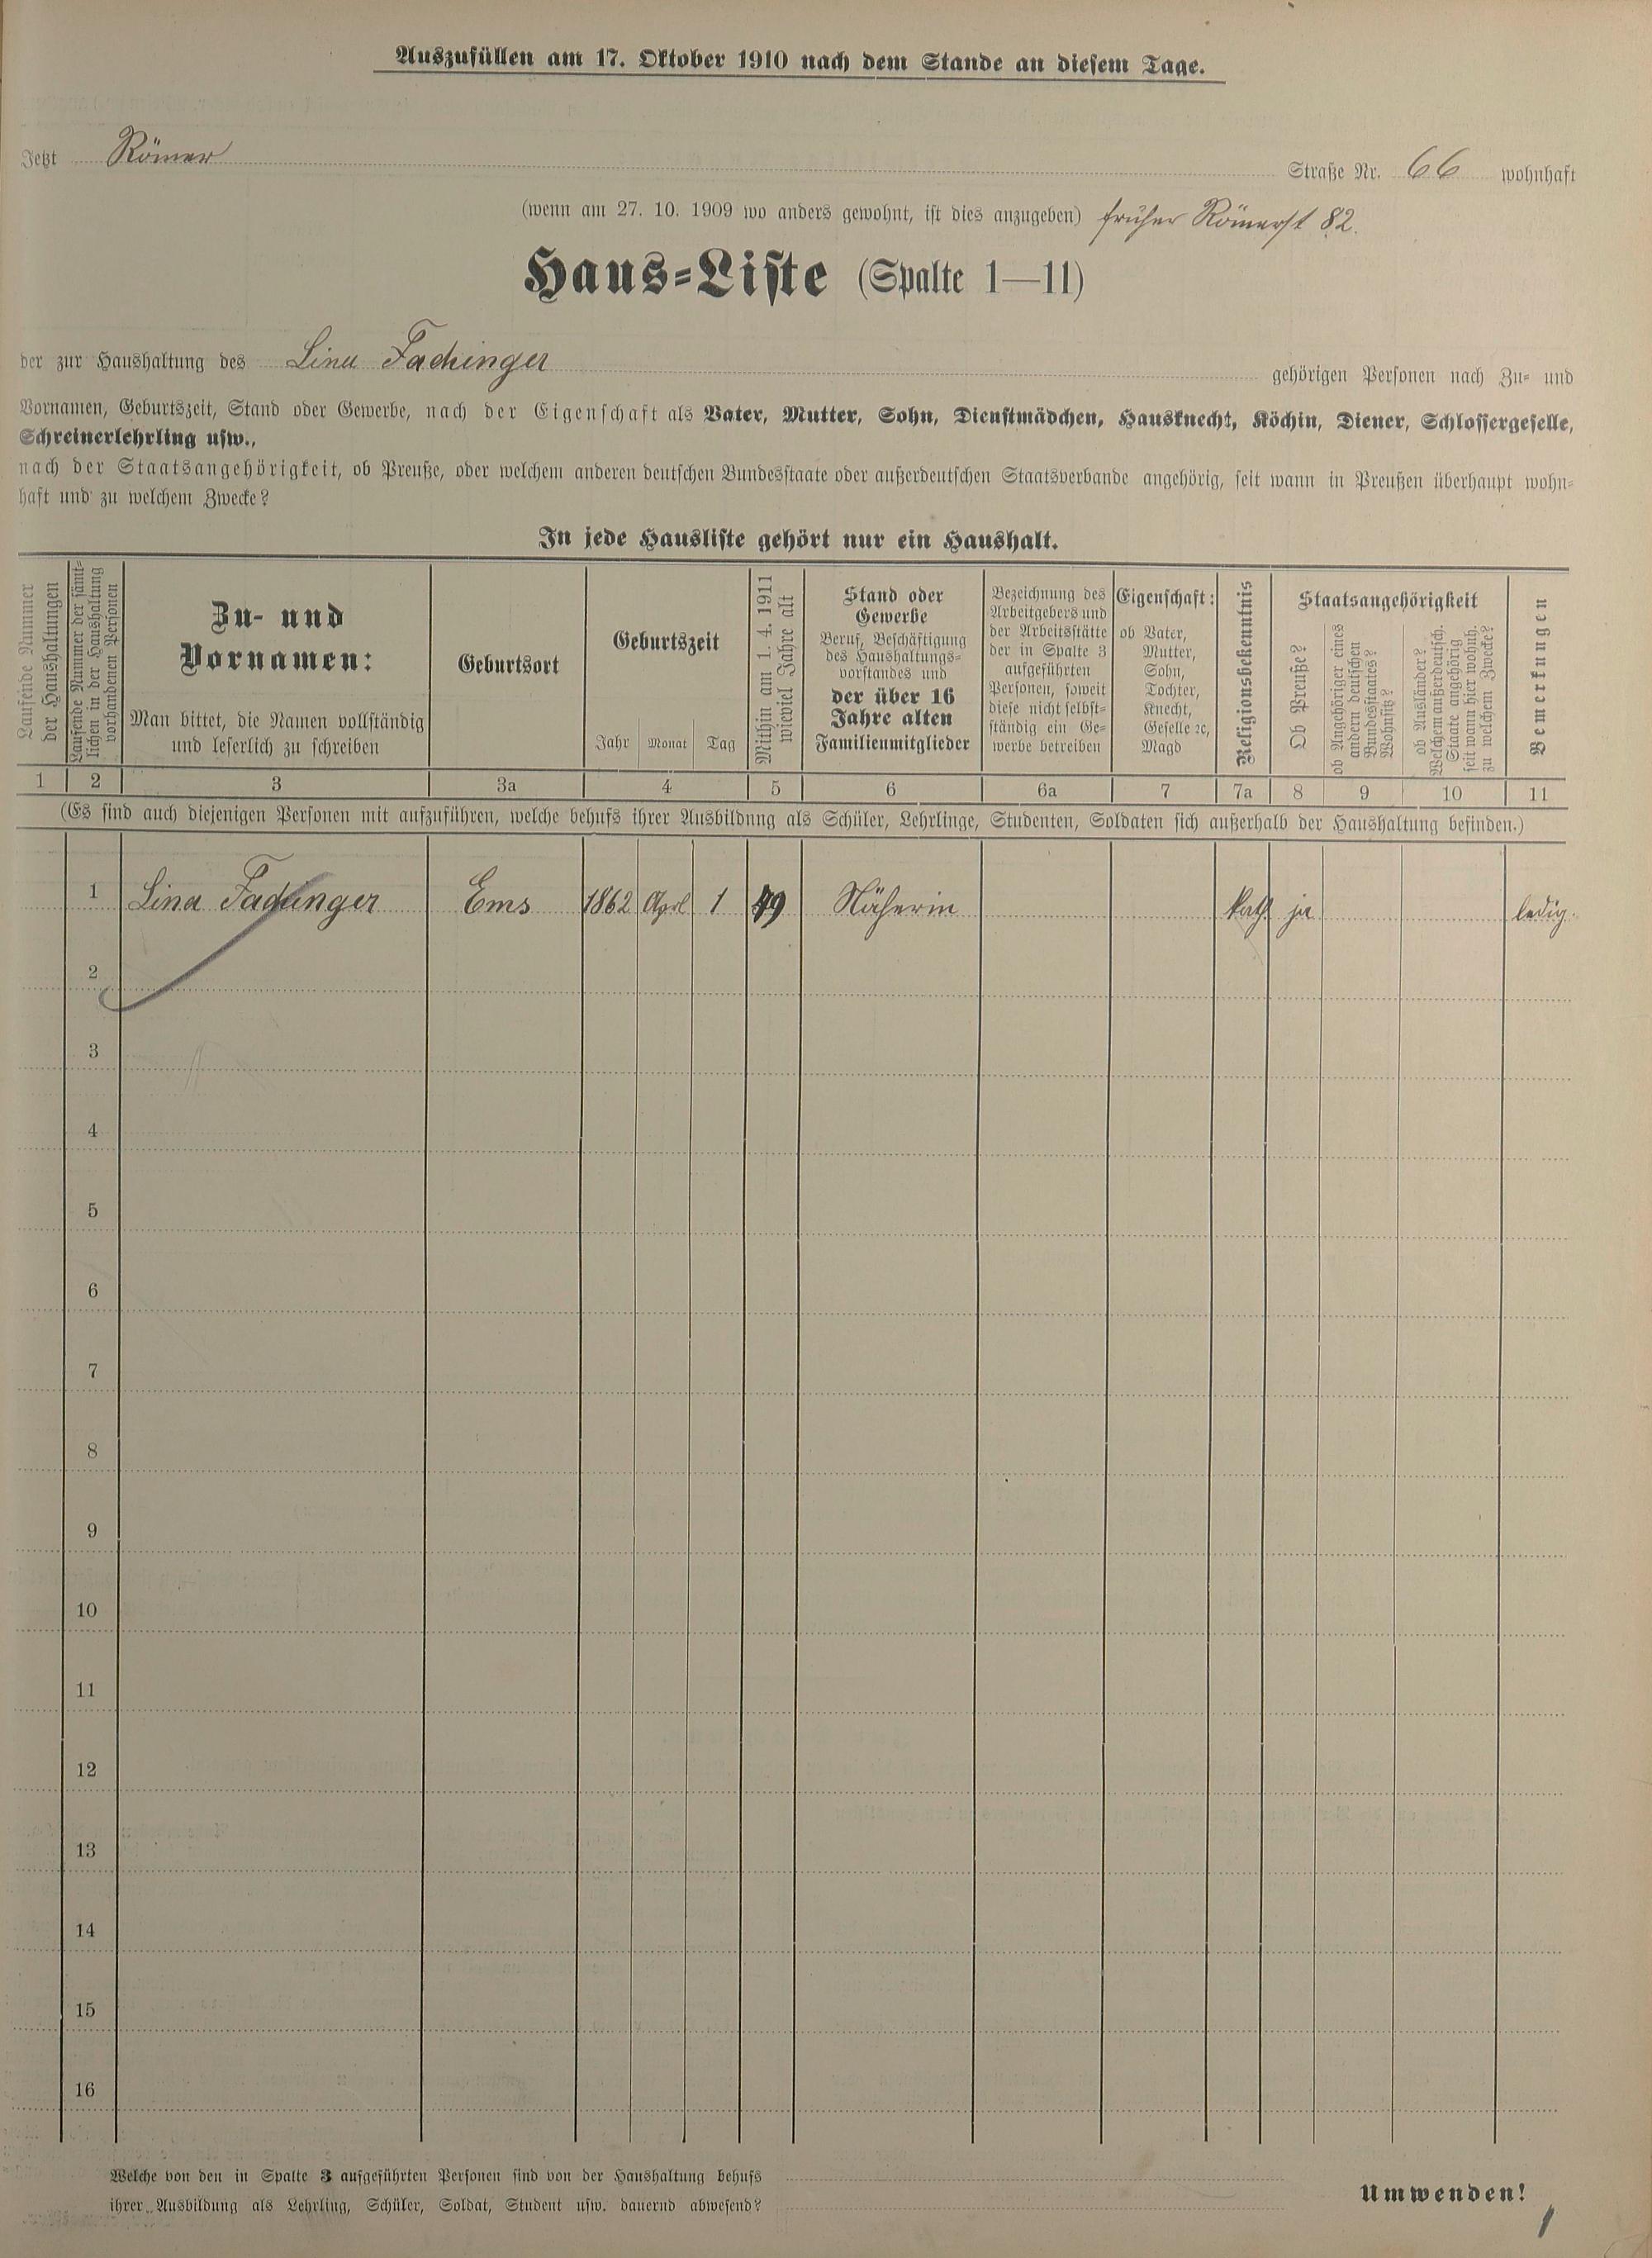 Auszufüllen am 17. Oktober 1910 nach dem Stande an diesem Tage.
Jetzt Römer Straße Nr. 66 wohnhaft
(wenn am 27. 10. 1909 wo anders gewohnt, ist dies anzugeben) früher Römerst 82.
Haus-Liste (Spalte 1—11)
der zur Haushaltung des Lina Fachinger gehörigen Personen nach Zu- und
Vornamen, Geburtszeit, Stand oder Gewerbe, nach der Eigenschaft als Vater, Mutter, Sohn, Dienstmädchen, Hausknecht, Köchin, Diener, Schlossergeselle,
Schreinerlehrling usw.,
nach der Staatsangehörigkeit, ob Preuße, oder welchem anderen deutschen Bundesstaate oder außerdeutschen Staatsverbande angehörig, seit wann in Preußen überhaupt wohn-
haft und zu welchem Zwecke?
In jede Hausliste gehört nur ein Haushalt.
Laufende Nummer
der Haushaltungen
Laufende Nummer der sämt-
lichen in der Haushaltung
vorhandenen Personen
Zu- und
Vornamen:
Man bittet, die Namen vollständig
und leserlich zu schreiben
Geburtsort
Geburtszeit
Jahr Monat Tag
Mithin am 1. 4. 1911
wieviel Jahre alt
Stand oder
Gewerbe
Beruf, Beschäftigung
des Haushaltungs-
vorstandes und
der über 16
Jahre alten
Familienmitglieder
Bezeichnung des
Arbeitgebers und
der Arbeitsstätte
der in Spalte 3
aufgeführten
Personen, soweit
diese nicht selbst-
ständig ein Ge-
werbe betreiben
Eigenschaft:
ob Vater,
Mutter,
Sohn,
Tochter,
Knecht,
Geselle ꝛc,
Magd
Religionsbekenntnis
Staatsangehörigkeit
Ob Preuße?
ob Angehöriger eines
andern deutschen
Bundesstaates?
Wohnsitz?
ob Ausländer?
Welchem außerdeutsch.
Staate angehörig
seit wann hier wohnh.
zu welchem Zwecke?
Bemerkungen
1 2 3 3a 4 5 6 6a 7 7a 8 9 10 11
(Es sind auch diejenigen Personen mit aufzuführen, welche behufs ihrer Ausbildung als Schüler, Lehrlinge, Studenten, Soldaten sich außerhalb der Haushaltung befinden.)
1 Lina Fachinger Ems 1862 April 1 49 Näherin Kath. ja ledig.
2
3
4
5
6
7
8
9
10
11
12
13
14
15
16
Welche von den in Spalte 3 aufgeführten Personen sind von der Haushaltung behufs
ihrer Ausbildung als Lehrling, Schüler, Soldat, Student usw. dauernd abwesend?
Umwenden!
1